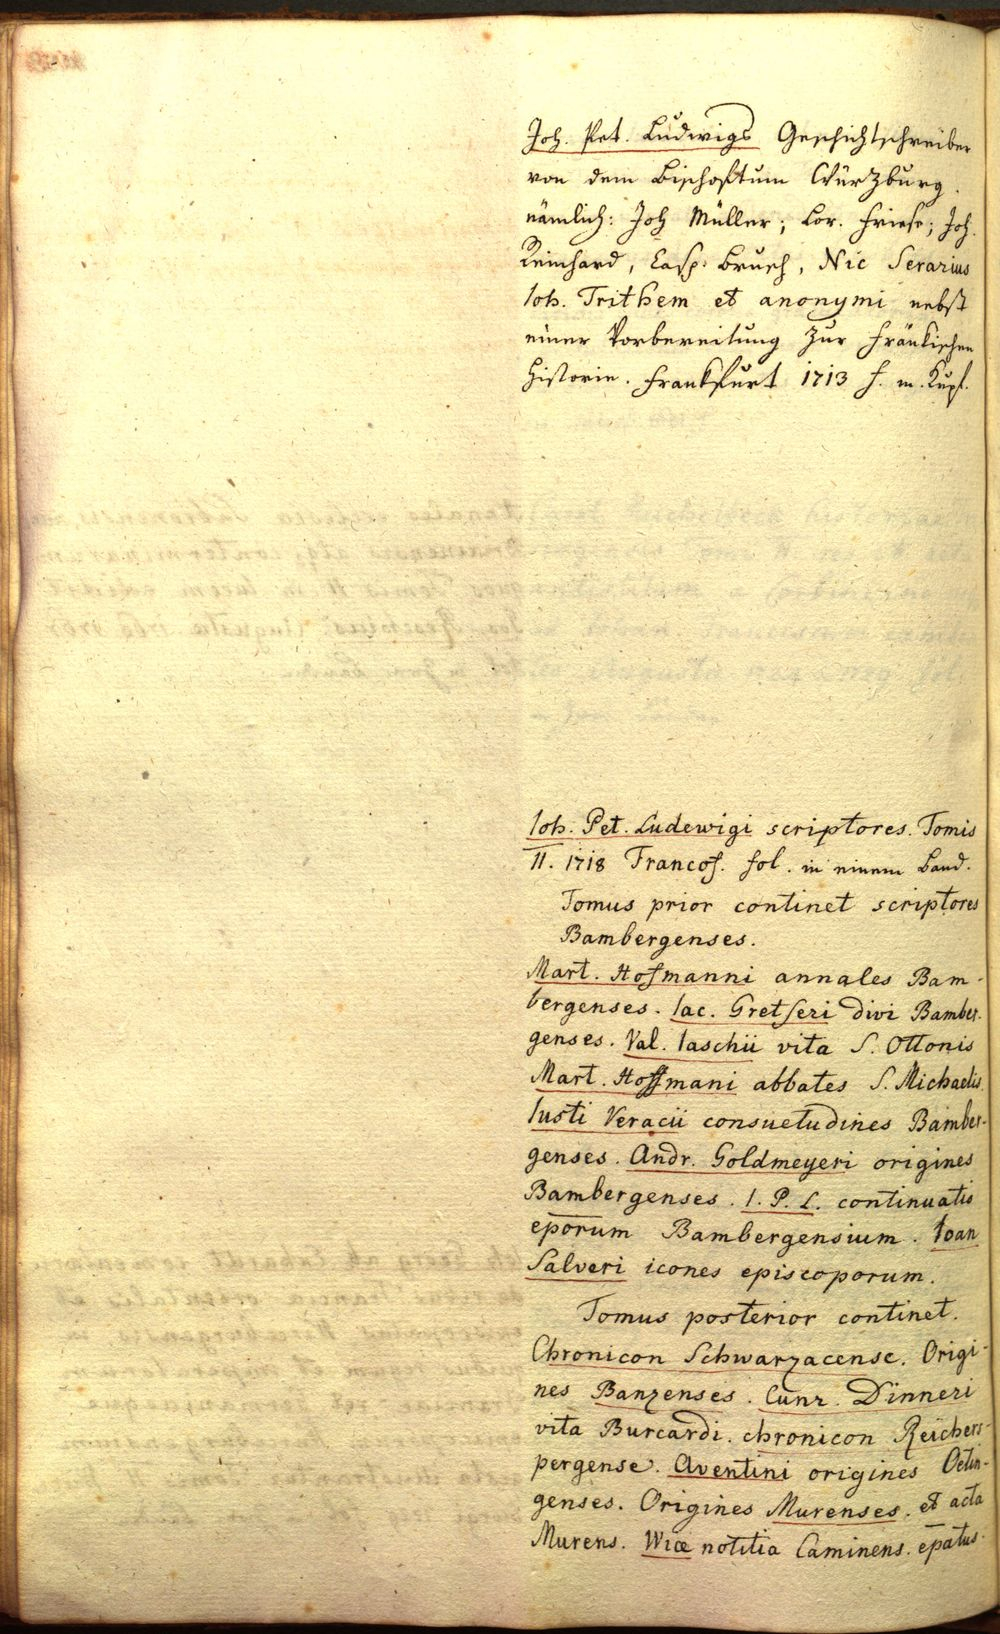 Joh. Pet. Ludwigs Geschichtschreiber
von dem Bischoftum Würzburg.
nämlich: Joh Müller; Lor. Friese; Joh.
Reinhard, Casp. Brusch, Nic Serarius
Ioh. Trithem et anonymi nebst
einer Vorbereitung zur Fränkischen
Historie. Frankfurt 1713 f. m. Kupf.
Ioh. Pet. Ludewigi scriptores. Tomis
II. 1718 Francof. fol. in einem Band.
Tomus prior continet scriptores
Bambergenses.
Mart. Hofmanni annales Bam-
bergenses. Iac. Gretseri divi Bamber-
genses. Val. Iaschii vita S. Ottonis
Mart. Hoffmani abbates S. Michaelis.
Iusti Veracii consuetudines Bamber-
genses. Andr. Goldmeyeri origines
Bambergenses. I. P. L. continuatio
eporum Bambergensium. Ioan
Salveri icones episcoporum.
Tomus posterior continet.
Chronicon Schwarzacense. Origi-
nes Banzenses. Cunr. Dinneri
vita Burcardi. chronicon Reichers-
pergense. Aventini origines Oetin-
genses. Origines Murenses. et acta
Murens. Wiæ notitia Caminens. epatus.